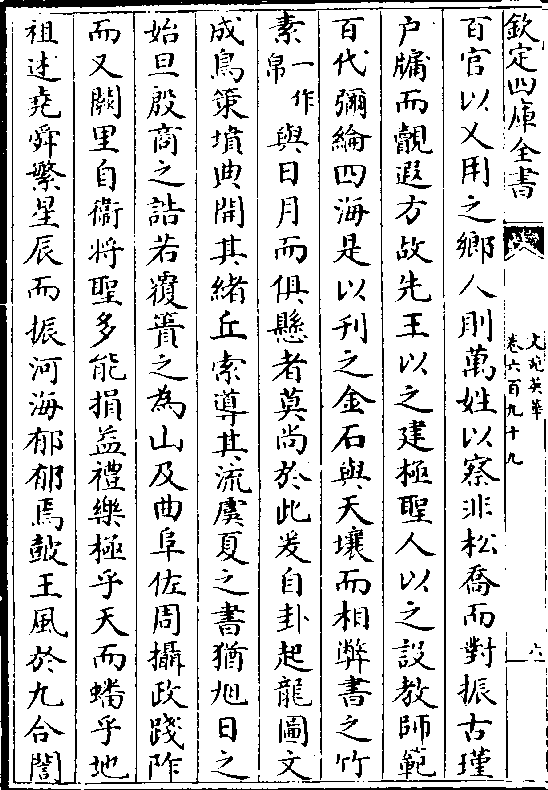 欽定四庫全書
文苑英華
卷六百九十九
六
百官以乂用之鄉人則萬姓以察非松喬而對振古瑾
户牖而覿遐方故先王以之建極聖人以之設教師範
百代彌綸四海是以刋之金石與天壤而相弊書之竹
素一作帛與日月而俱懸者莫尚於此爰自卦起龍圖文
成鳥策墳典開其緒丘索導其流虞夏之書猶旭日之
始旦殷商之誥若覆簣之為山及曲阜佐周攝政踐阼
而又闕里自衞将聖多能損益禮樂極乎天而蟠乎地
祖述堯舜繫星辰而振河海郁郁焉皷王風於九合誾